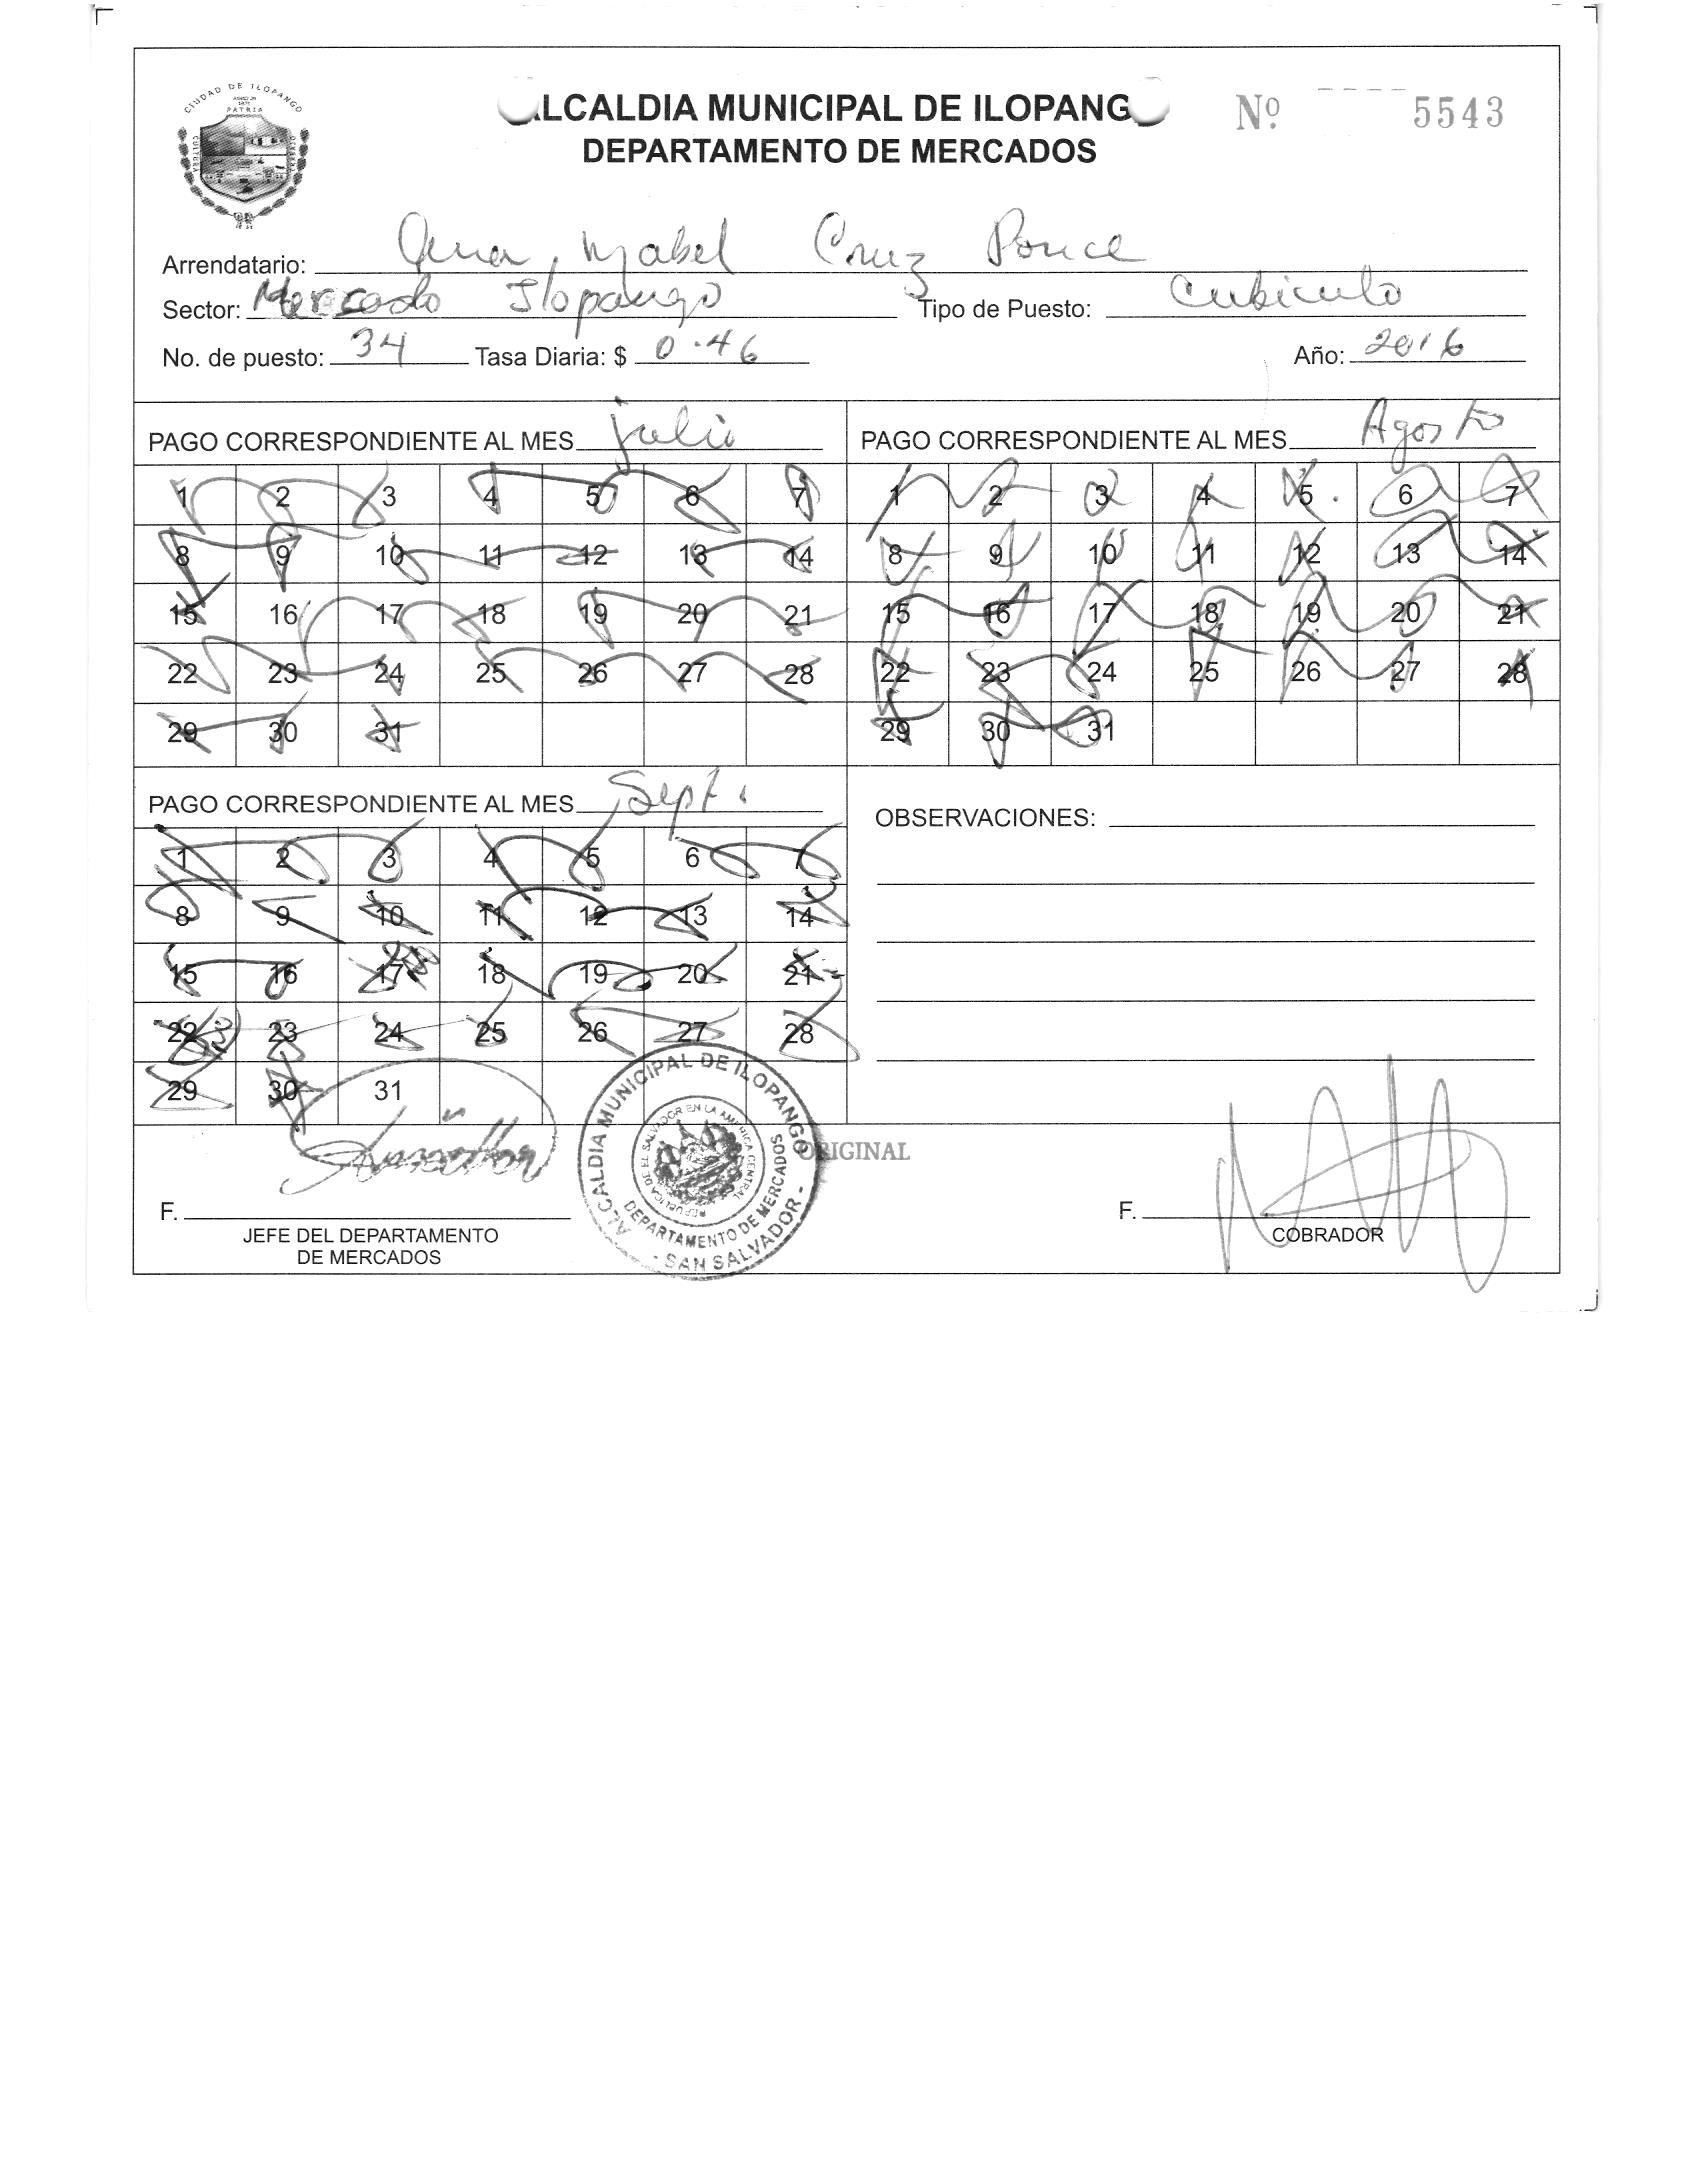 CIUDAD DE ILOPANGO
PATRIA
CULTURA
ALCALDIA MUNICIPAL DE ILOPANGO
Nº 5543
DEPARTAMENTO DE MERCADOS
Arrendatario: Ana Mabel Cruz Ponce
Sector: Mercado Ilopango Tipo de Puesto: Cubiculo
No. de puesto: 34 Tasa Diaria: $ 0.46 Año: 2016
PAGO CORRESPONDIENTE AL MES julio
1 2 3 4 5 6 7
8 9 10 11 12 13 14
15 16 17 18 19 20 21
22 23 24 25 26 27 28
29 30 31
PAGO CORRESPONDIENTE AL MES Agosto
1 2 3 4 5 6 7
8 9 10 11 12 13 14
15 16 17 18 19 20 21
22 23 24 25 26 27 28
29 30 31
PAGO CORRESPONDIENTE AL MES Sept.
1 2 3 4 5 6 7
8 9 10 11 12 13 14
15 16 17 18 19 20 21
22 23 24 25 26 27 28
29 30 31
OBSERVACIONES:
ALCALDIA MUNICIPAL DE ILOPANGO
REPUBLICA DE EL SALVADOR EN LA AMERICA CENTRAL
DEPARTAMENTO DE MERCADOS
- SAN SALVADOR -
ORIGINAL
F.
JEFE DEL DEPARTAMENTO
DE MERCADOS
F.
COBRADOR